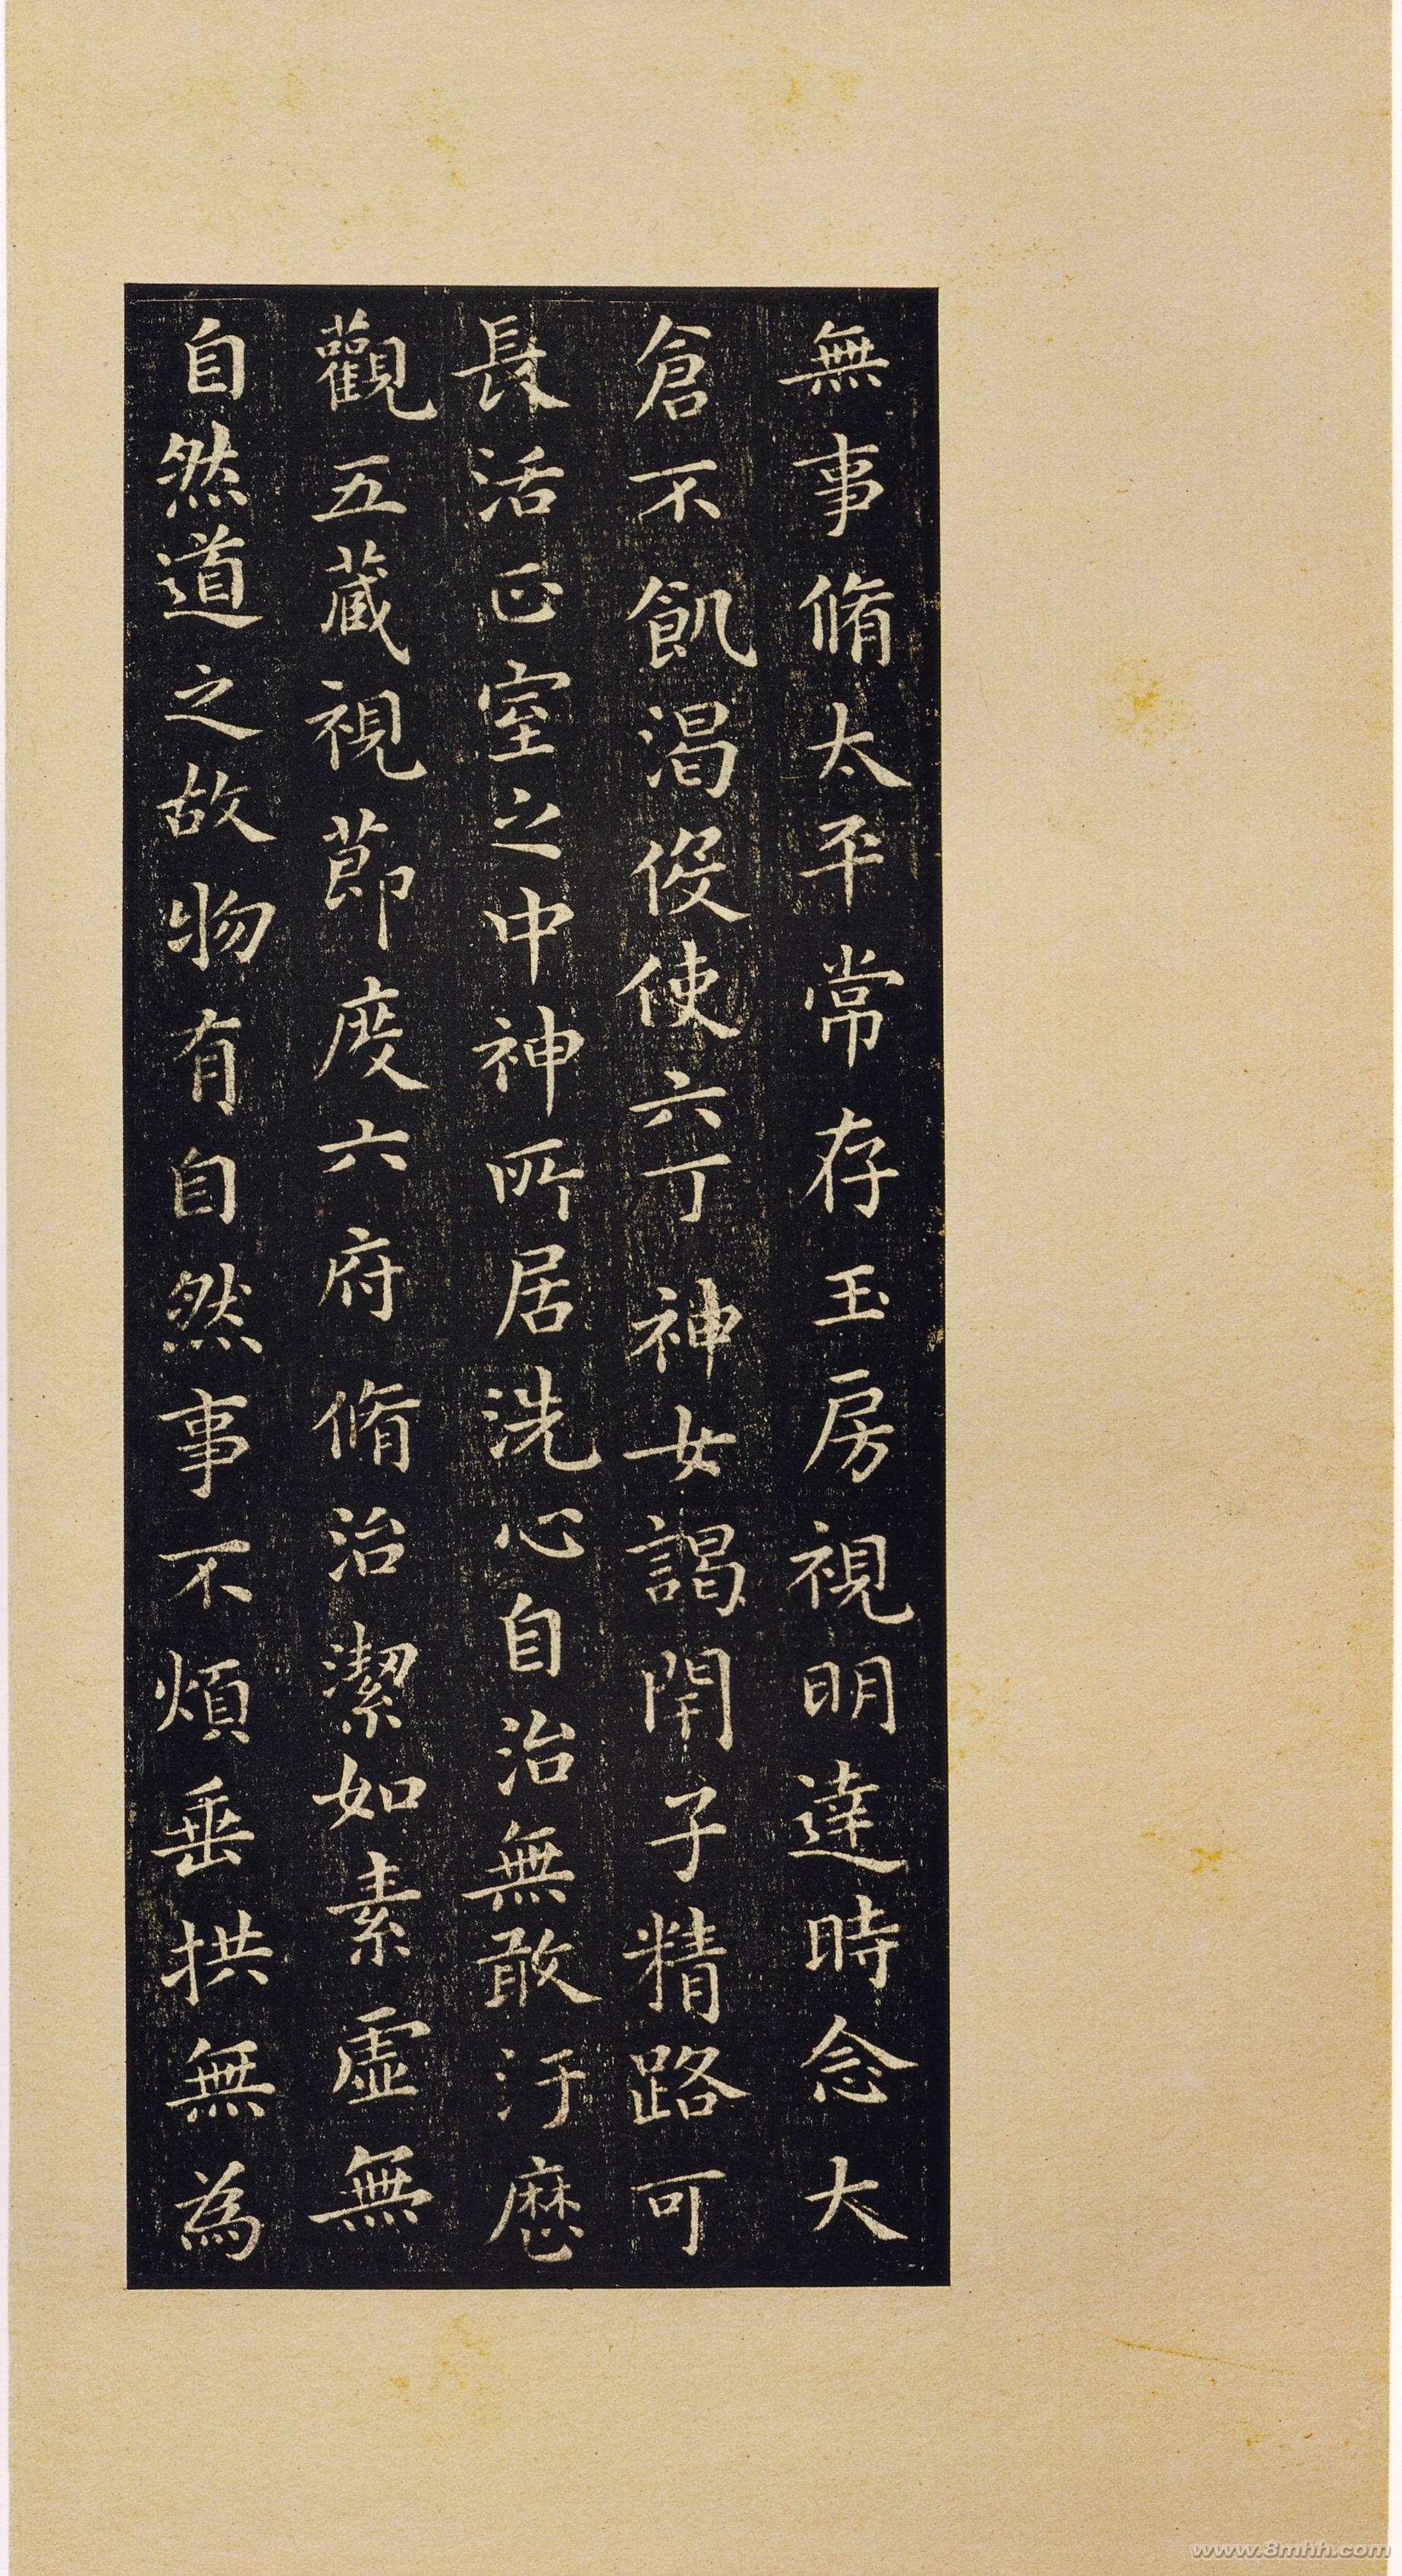 無事脩太平常存玉房視明達時念大
倉不飢渴伇使六丁神女謁閇子精路可
長活正室之中神所居洗心自治無敢汙歷
觀五藏視節度六府脩治潔如素虛無
自然道之故物有自然事不煩垂拱無為
www.8mhh.com